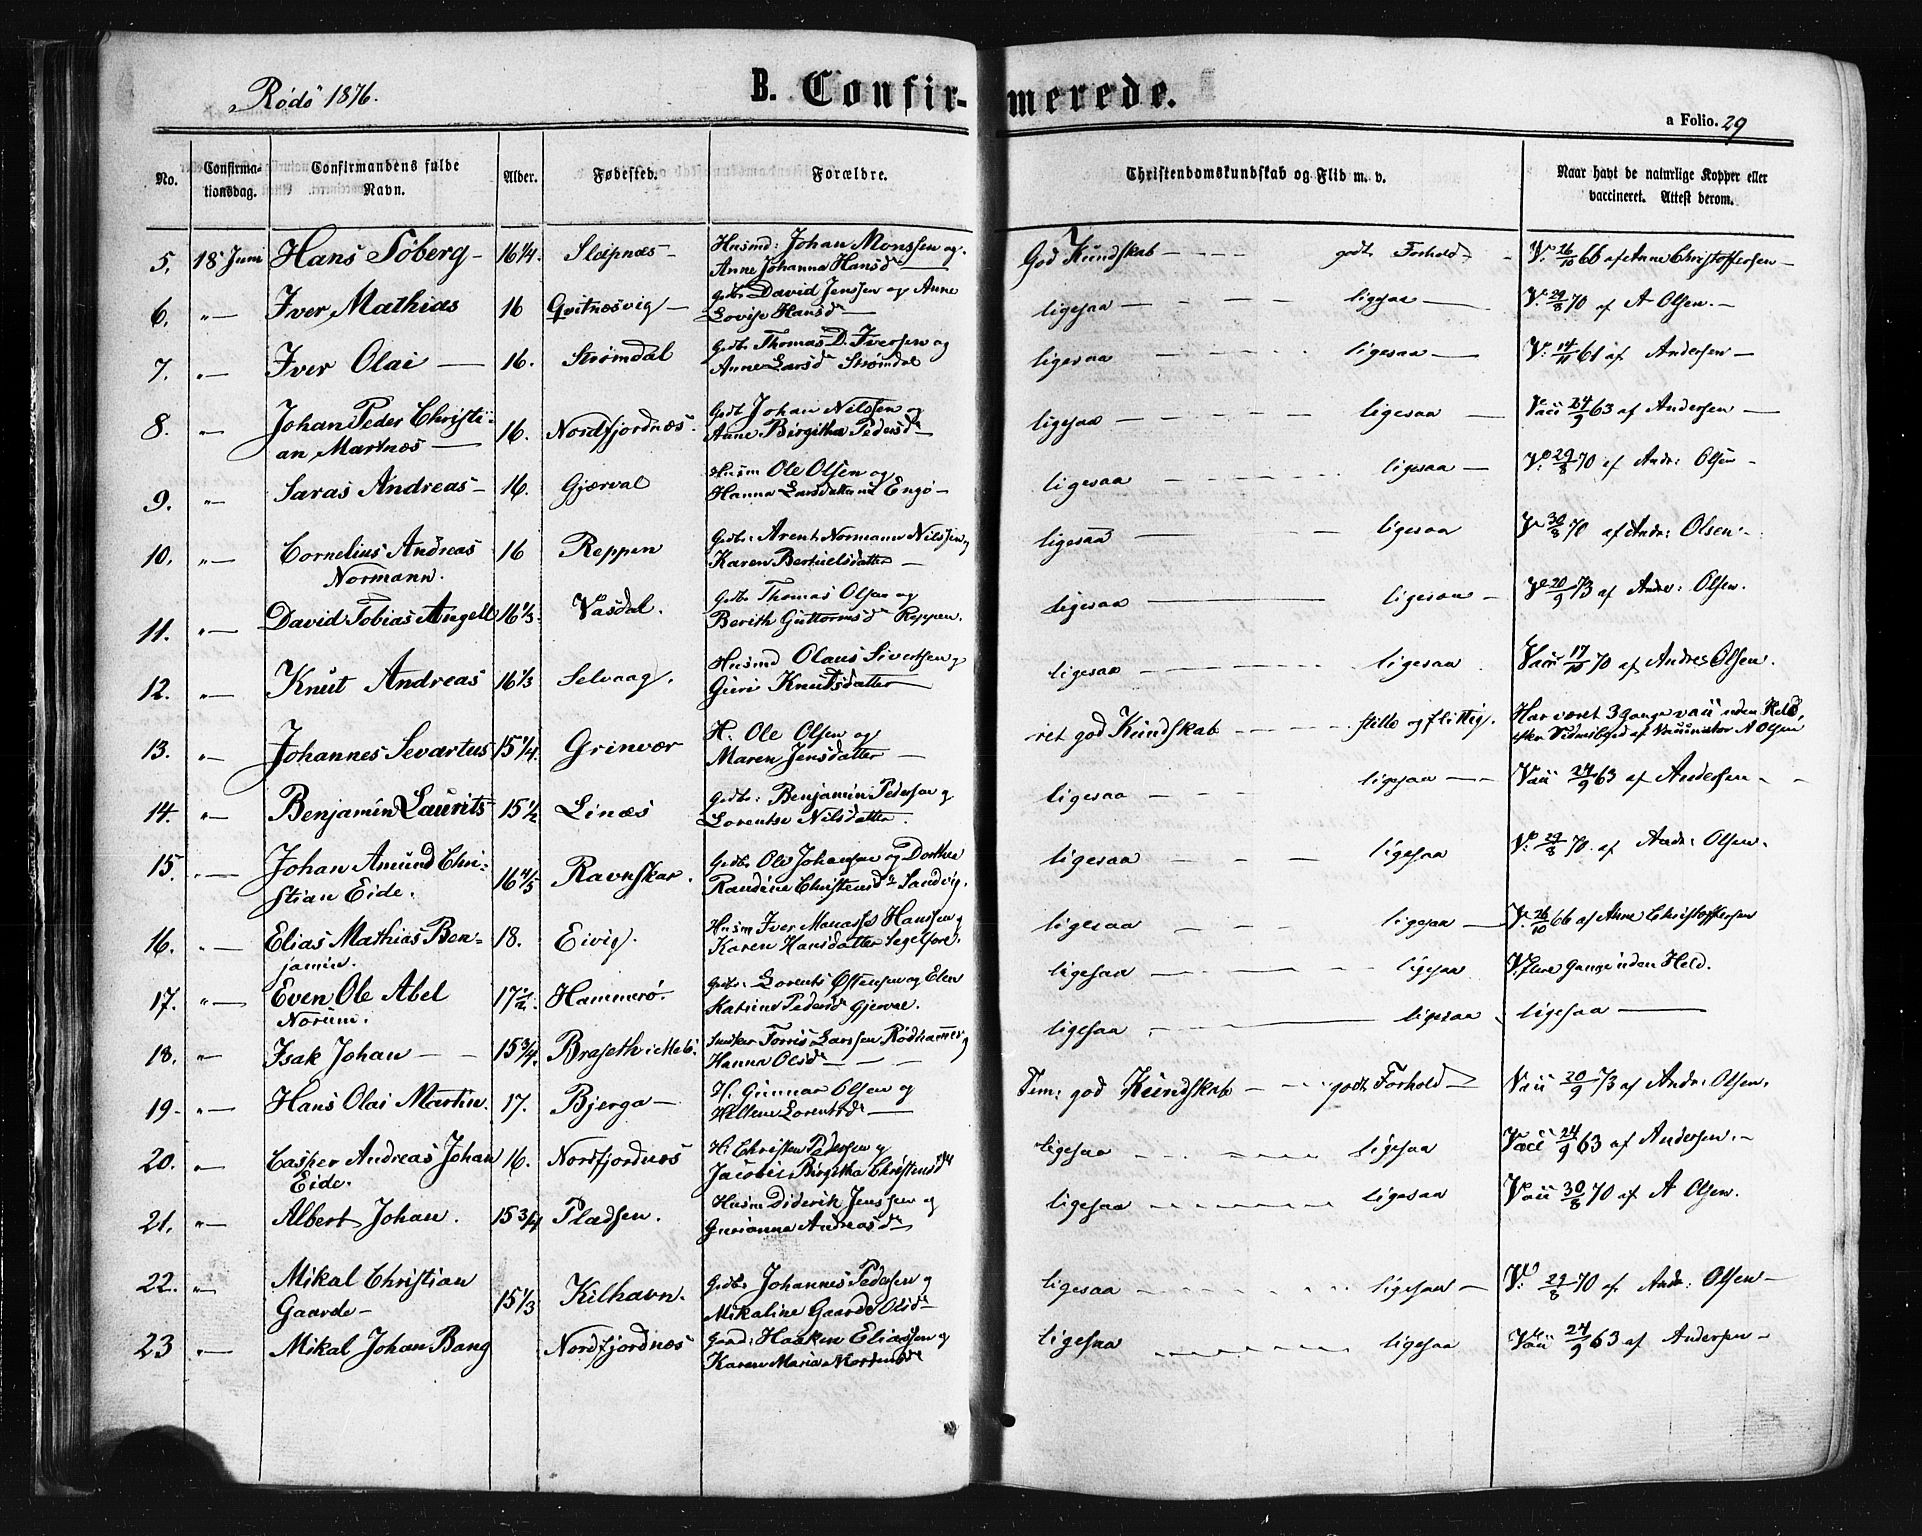 Rödö 1876.
B. Confirmerede.
a Folio. 29
No. Confirmationsdag. Confirmandens fulde Navn. Alder. Fødested. Forældre. Christendomskundskab og Flid m. v. Naar havt de naturlige Kopper eller vaccineret. Attest derom.
5. 18 Juni Hans Söberg 16 1/4. Slapnæs Husmd: Johan Monssen og Anne Johanna Hansd God Kundskab godt Forhold V. 26/10 66 af Anne Christoffersen
6. " Iver Mathias 16 Qvitnæsvig Gdbr David Jenssen og Anne Lovise Hansd ligesaa ligesaa V. 29/8 70 af A Olsen.
7. " Iver Olai 16. Strömdal Gdbr Thomas D. Iversen og Anne Larsd Strömdal ligesaa ligesaa V. 14/11 61 af Andersen
8. " Johan Peder Christian Martnæs 16. Nordfjordnæs. Gdbr Johan Nilssen og Anne Birgitha Pedersd ligesaa ligesaa Vacc 24/9 63 af Andersen
9. " Saras Andreas 16. Gjærval Husm Ole Olsen og Hanna Larsdatter Engö ligesaa ligesaa V. 29/8 70 af Andr: Olsen
10. " Cornelius Andreas Normann. 16 Reppen Gdbr: Arent Normann Nilssen og Karen Bertuelsdatter ligesaa ligesaa V 30/8 70 af Andr: Olsen.
11. " David Tobias Angell 16 1/3. Vasdal. Gdbr Thomas Olsen og Berith Guttormsd Reppen. ligesaa ligesaa V. 20/9 73 af Andr: Olsen.
12. " Knut Andreas 16 1/3 Selvaag. Husmd Olaus Sivertsen og Guri Knutsdatter ligesaa ligesaa Vacc 17/10 70 af Andres Olsen.
13. " Johannes Sevartus 15 1/4. Grinvær H. Ole Olsen og Maren Jensdatter ret god Kundskab stille og flittig. Har været 3 gange vacc uden Held, efter Vidnesbyrd af Vaccinatør A Olsen
14. " Benjamin Laurits 15 1/2 Linæs Gdbr: Benjamin Pedersen og Lorentse Nilsdatter. ligesaa ligesaa Vacc 24/9 63 af Andersen
15. " Johan Amund Christian Eide. 16 4/5 Ravnskar. Gdbr Ole Johansen og Dorthea Randine Christensd Sandvig. ligesaa ligesaa V. 29/8 70. af Andr: Olsen.
16. " Elias Mathias Benjamin. 18. Eivig. Husm Iver Manasse Hanssen og Karen Hansdatter Segelfore. ligesaa ligesaa V. 26/10 66 af Anne Christoffersen
17. " Even Ole Abel Norum. 17 1/2. Hammerö. Gdbr: Lorents Östensen og Elen Katrine Pedersd Gjerval. ligesaa ligesaa V. flere Gange uden Held.
18. " Isak Johan 15 3/4. Braseth i Melö. Torris Larssen Rödhammer og Hanna Olsd ligesaa ligesaa ligesaa
19. " Hans Olai Martin. 17. Bjerga H. Gunnar Olsen og Hellene Lorentsd Tem: god Kundskab godt Forhold Vacc 20/9 73 af Andr: Olsen.
20. " Casper Andreas Johan Eide. 16. Nordfjordnæs H. Christen Pedersen og Jacobie Birgitha Christensd ligesaa ligesaa Vacc 24/9 63 af Andersen.
21. " Albert Johan. 15 3/4 Pladsen. Husm Diderik Jenssen og Gurianna Andreasd ligesaa ligesaa Vacc 30/8 70 af A Olsen.
22. " Mikal Christian Gaarde 15 1/3 Kilhavn. Gdbr Johannes Pedersen og Mikaline Gaarde Olsd ligesaa ligesaa V. 29/8 70 af Andr: Olsen
23 " Mikal Johan Bang Nordfjordnæs Gaard: Haaken Eliassen og Karen Maria Mortensd ligesaa ligesaa Vacc 24/9 63 af Andersen